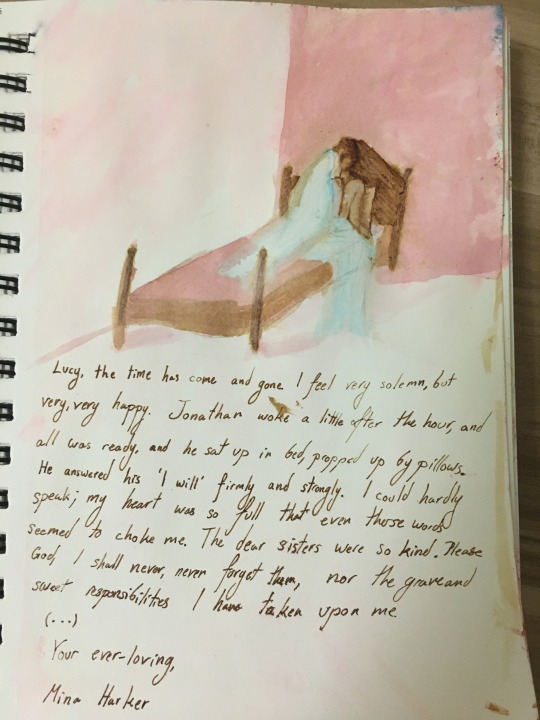 Lucy, the time has come and gone. I feel very solemn, but
very, very happy. Jonathan woke a little after the hour, and
all was ready, and he sat up in bed, popped up by pillows.
He answered his 'I will' firmly and strongly. I could hardly
speak; my heart was so full that even those words
seemed to choke me. The dear sisters were so kind. Please
God, I shall never, never forget them, nor the grave and
sweet responsibilities I have taken upon me.
(...)
Your ever-loving,
Mina Harker